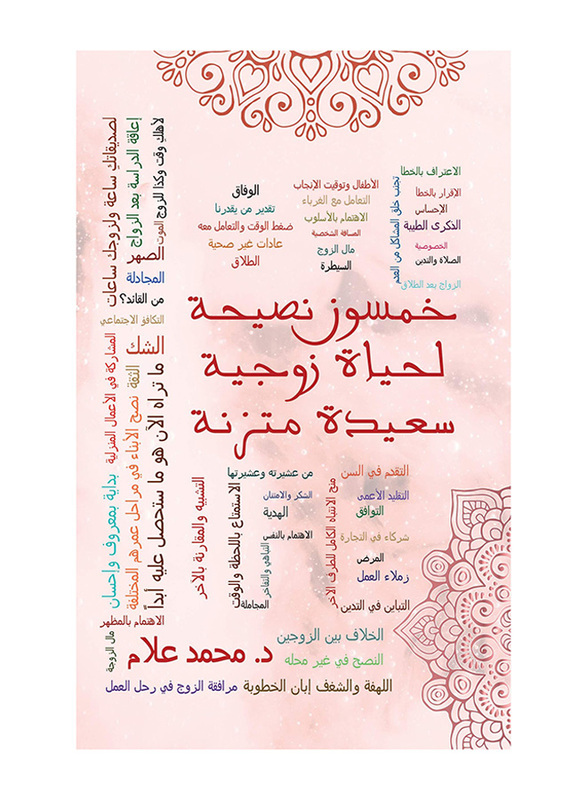 لأهلك وقت وكذا للزوج
الموت
إعاقة الدراسة بعد الزواج
الصهر
لصديقاتك ساعة ولزوجك ساعات
المجادلة
من القائد؟
التكافؤ الاجتماعي
الشك
الاعتراف بالخطأ
الإقرار بالخطأ
الإحساس
الذكرى الطيبة
الخصوصية
الصلاة والتدين
الزواج بعد الطلاق
تجنب خلق المشاكل من العدم
الأطفال وتوقيت الإنجاب
التعامل مع الغرباء
الاهتمام بالأسلوب
الصداقة الشخصية
مال الزوج
السيطرة
الوفاق
تقدير من يقدرنا
ضغط الوقت والتعامل معه
عادات غير صحية
الطلاق
خمسون نصيحة
لحياة زوجية
سعيدة متزنة
ما تراه الآن هو ما ستحصل عليه أبداً
الثقة
نصح الأبناء في مراحل عمرهم المختلفة
المشاركة في الأعمال المنزلية
بداية بمعروف وإحسان
التقدم في السن
التقليد الأعمى
التوافق
شركاء في التجارة
المرض
زملاء العمل
التباين في التدين
منح الانتباه الكامل للطرف الآخر
من عشيرته وعشيرتها
الشكر والامتنان
الهدية
الاهتمام بالنفس
التباهي والتفاخر
المجاملة
الاستمتاع باللحظة والوقت
التشبيه والمقارنة بالآخر
الاهتمام بالمظهر
مال الزوجة
الخلاف بين الزوجين
د. محمد علام
النصح في غير محله
اللهفة والشغف إبان الخطوبة
مرافقة الزوج في رحل العمل